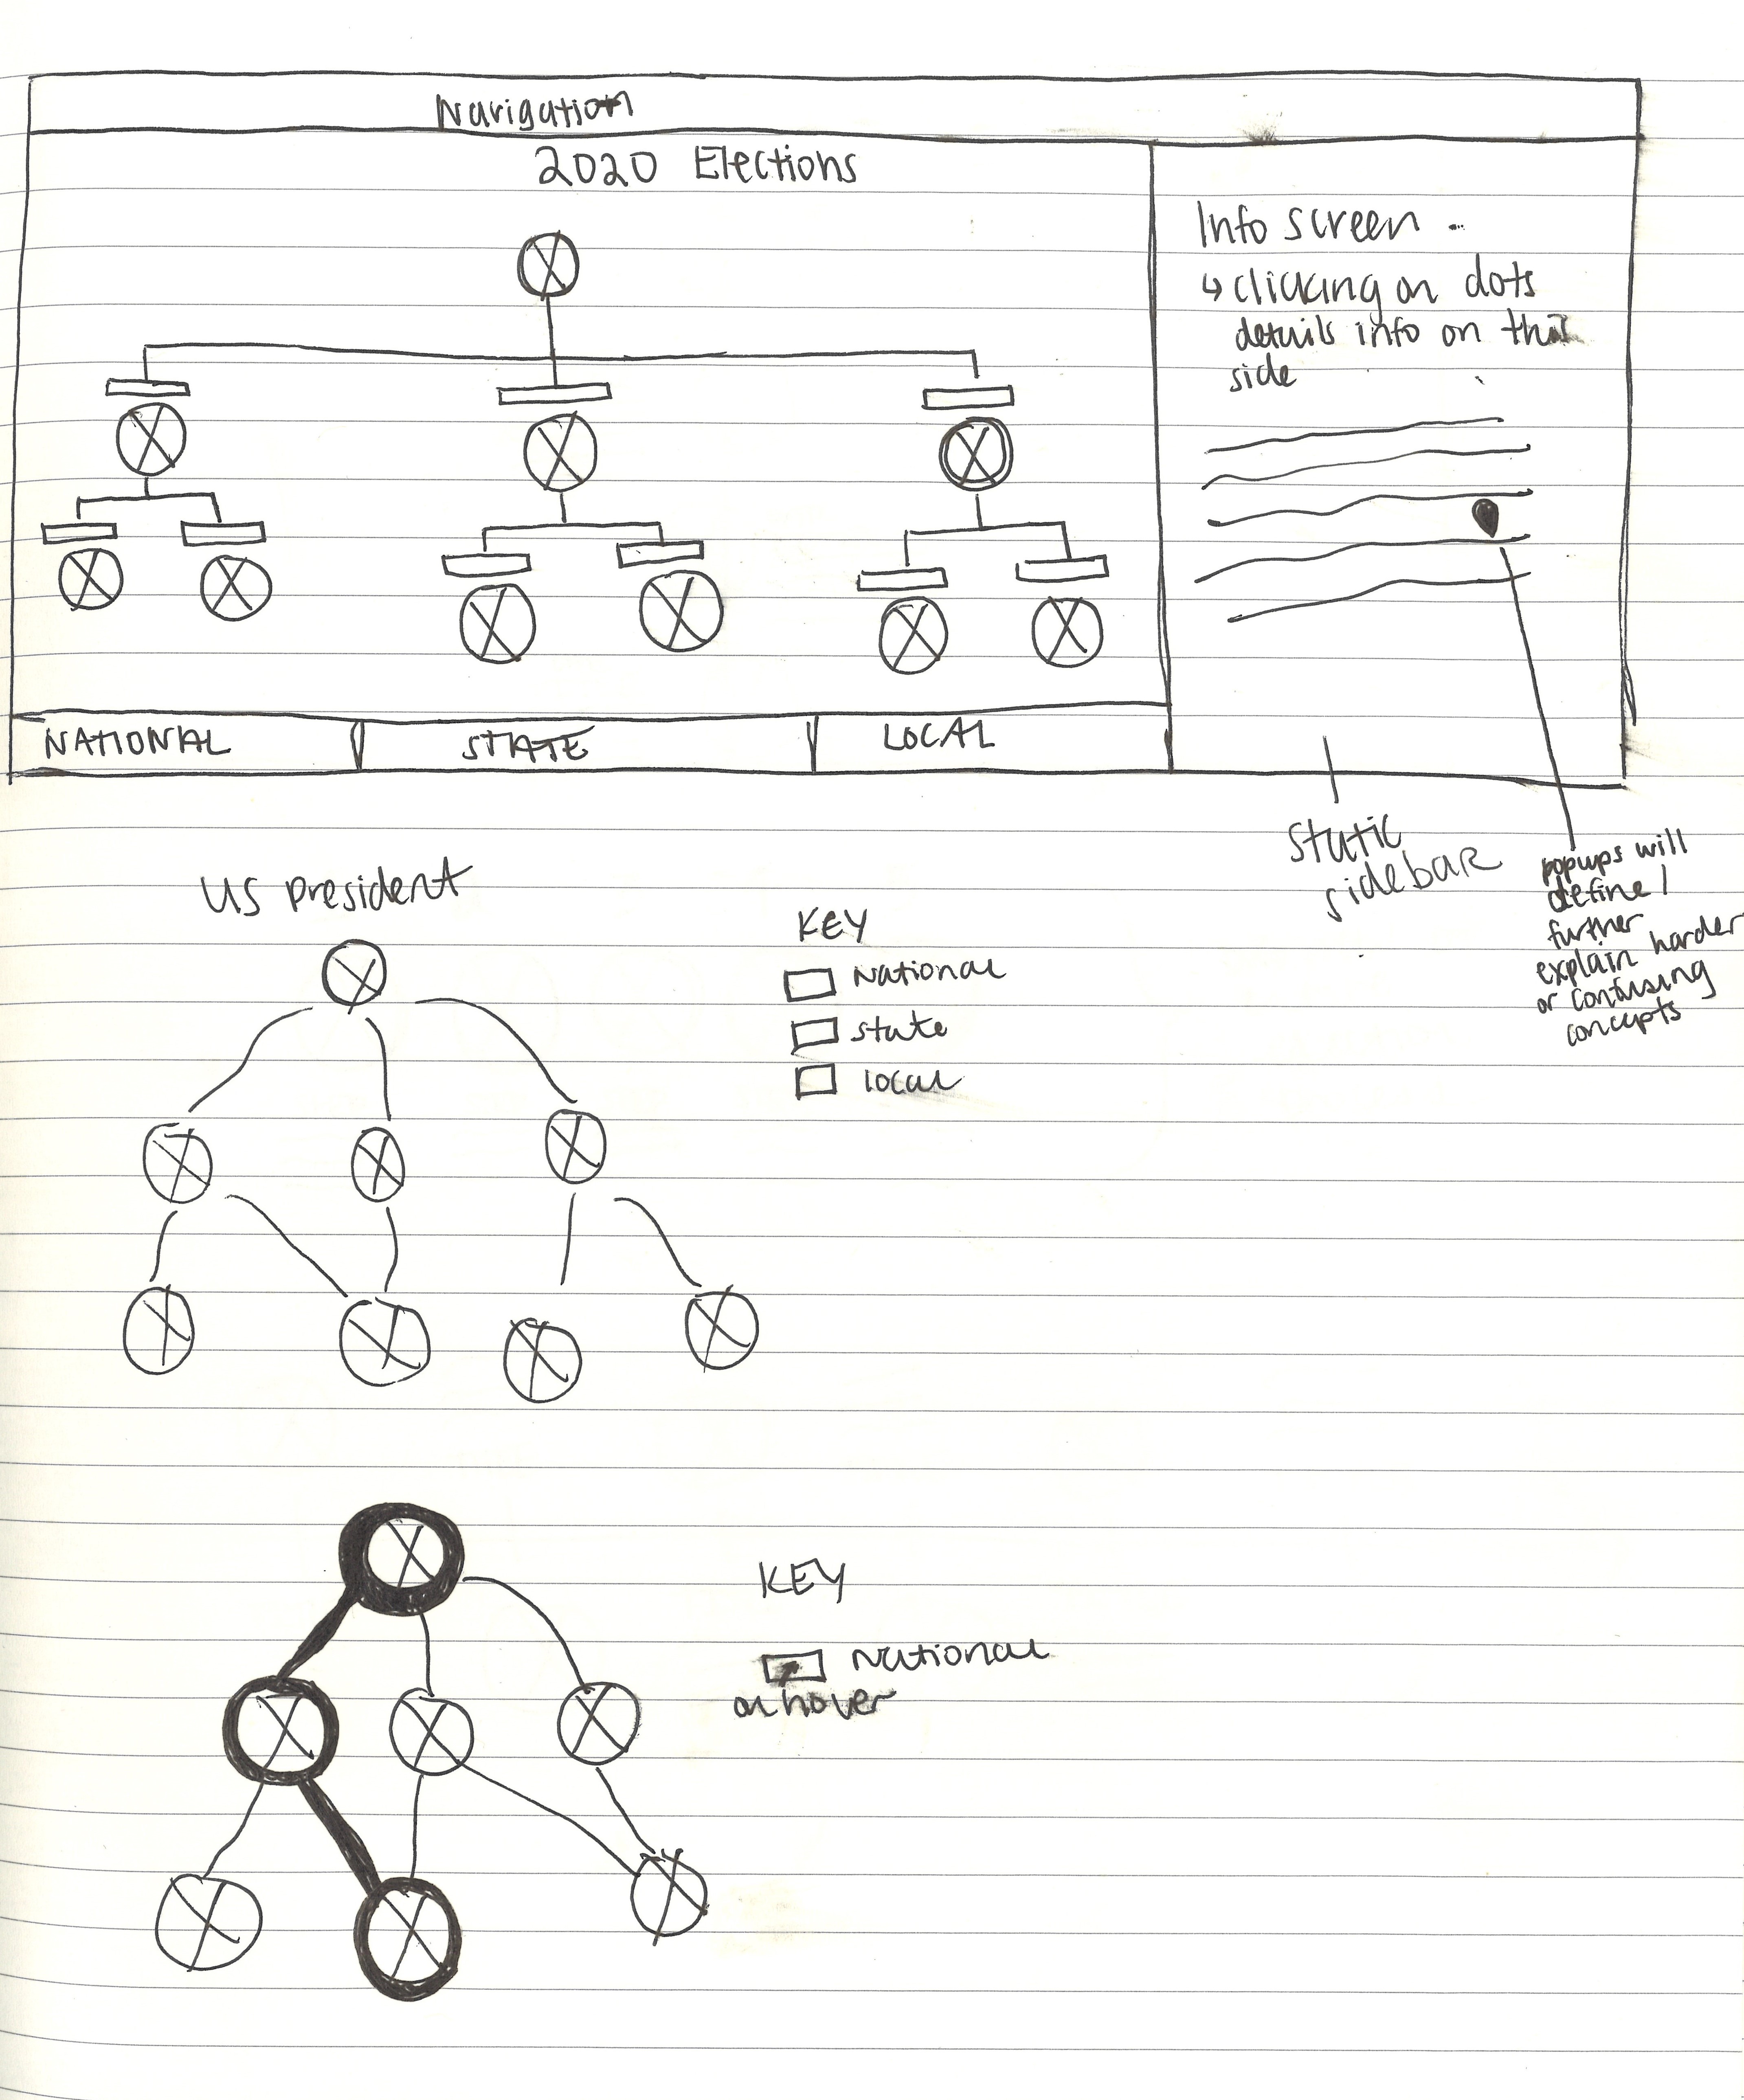 Navigation
2020 Elections
Info screen -
↳ clicking on dots
details info on this
side
NATIONAL
STATE
LOCAL
static
sidebar
popups will
define /
further
explain harder
or confusing
concepts
US president
KEY
National
state
local
KEY
National
on hover